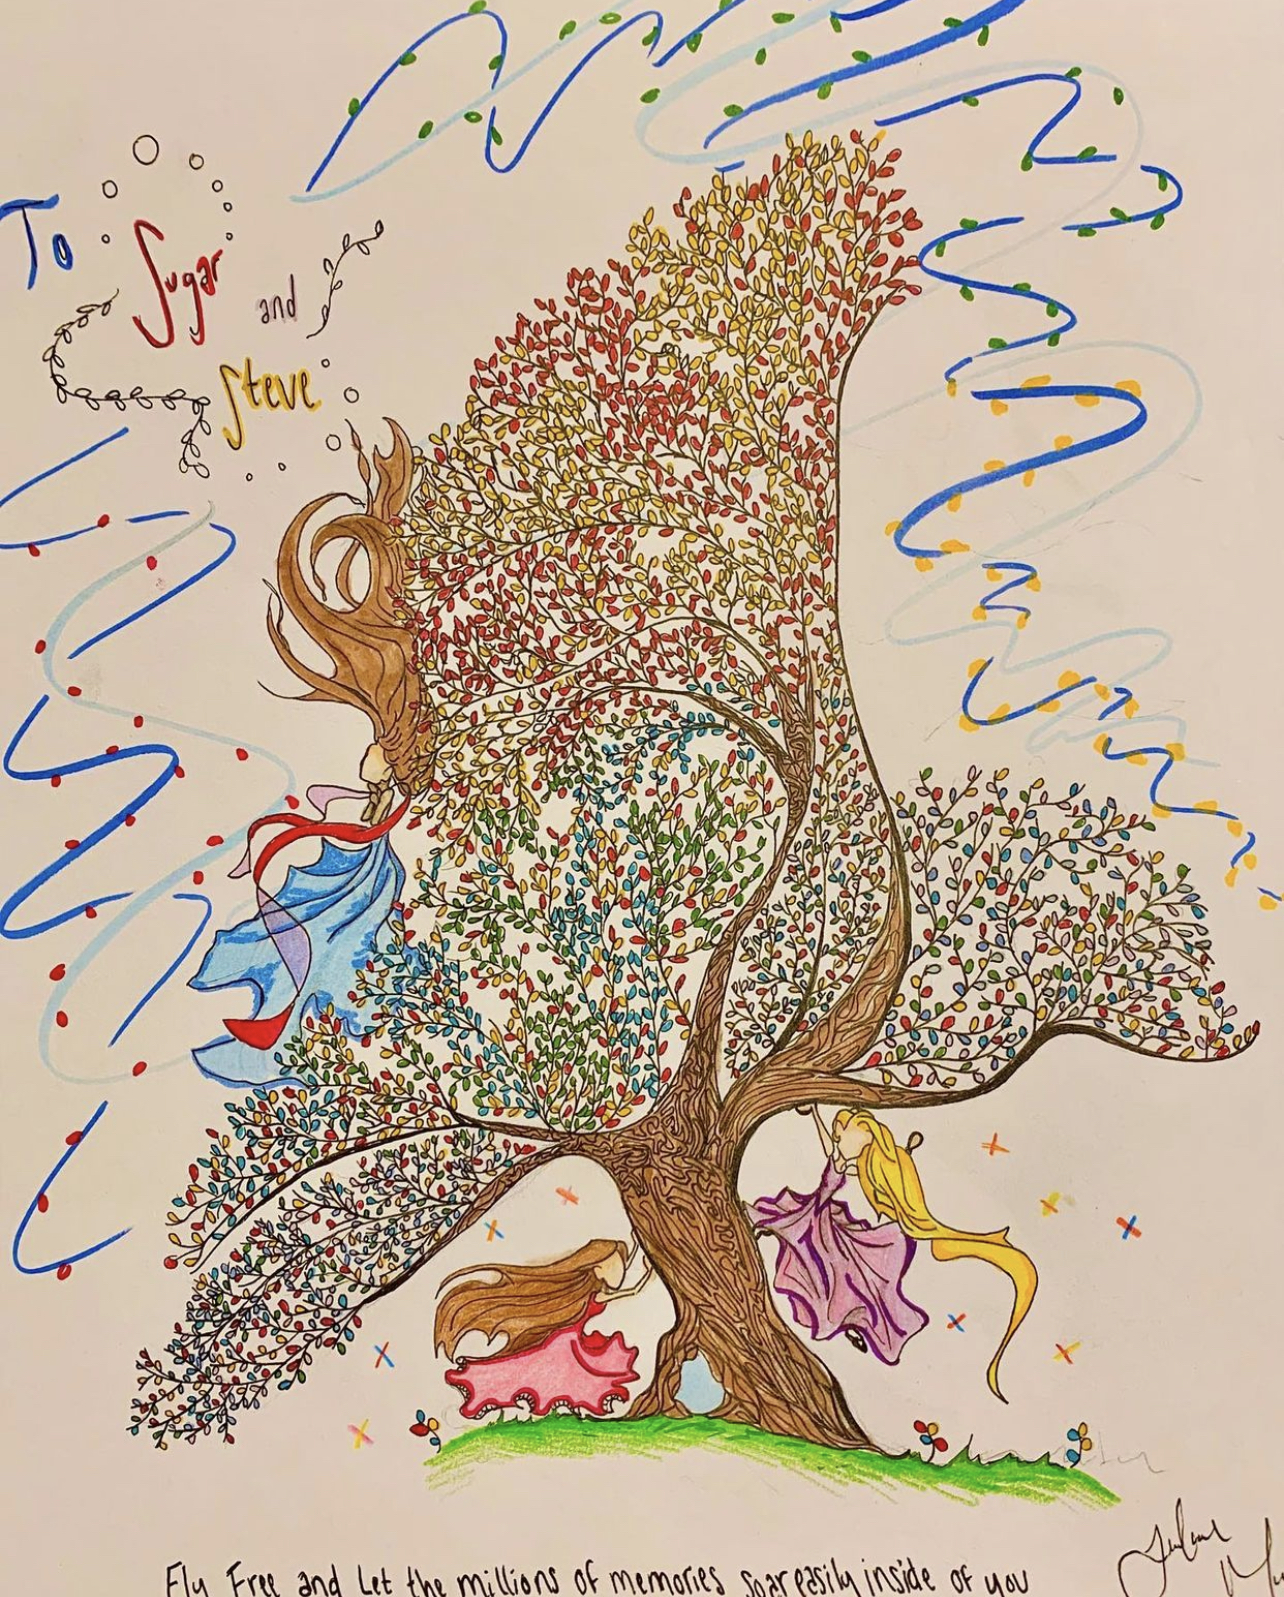 To
Sugar
and
Steve
Fly Free and Let the millions of memories soar easily inside of you